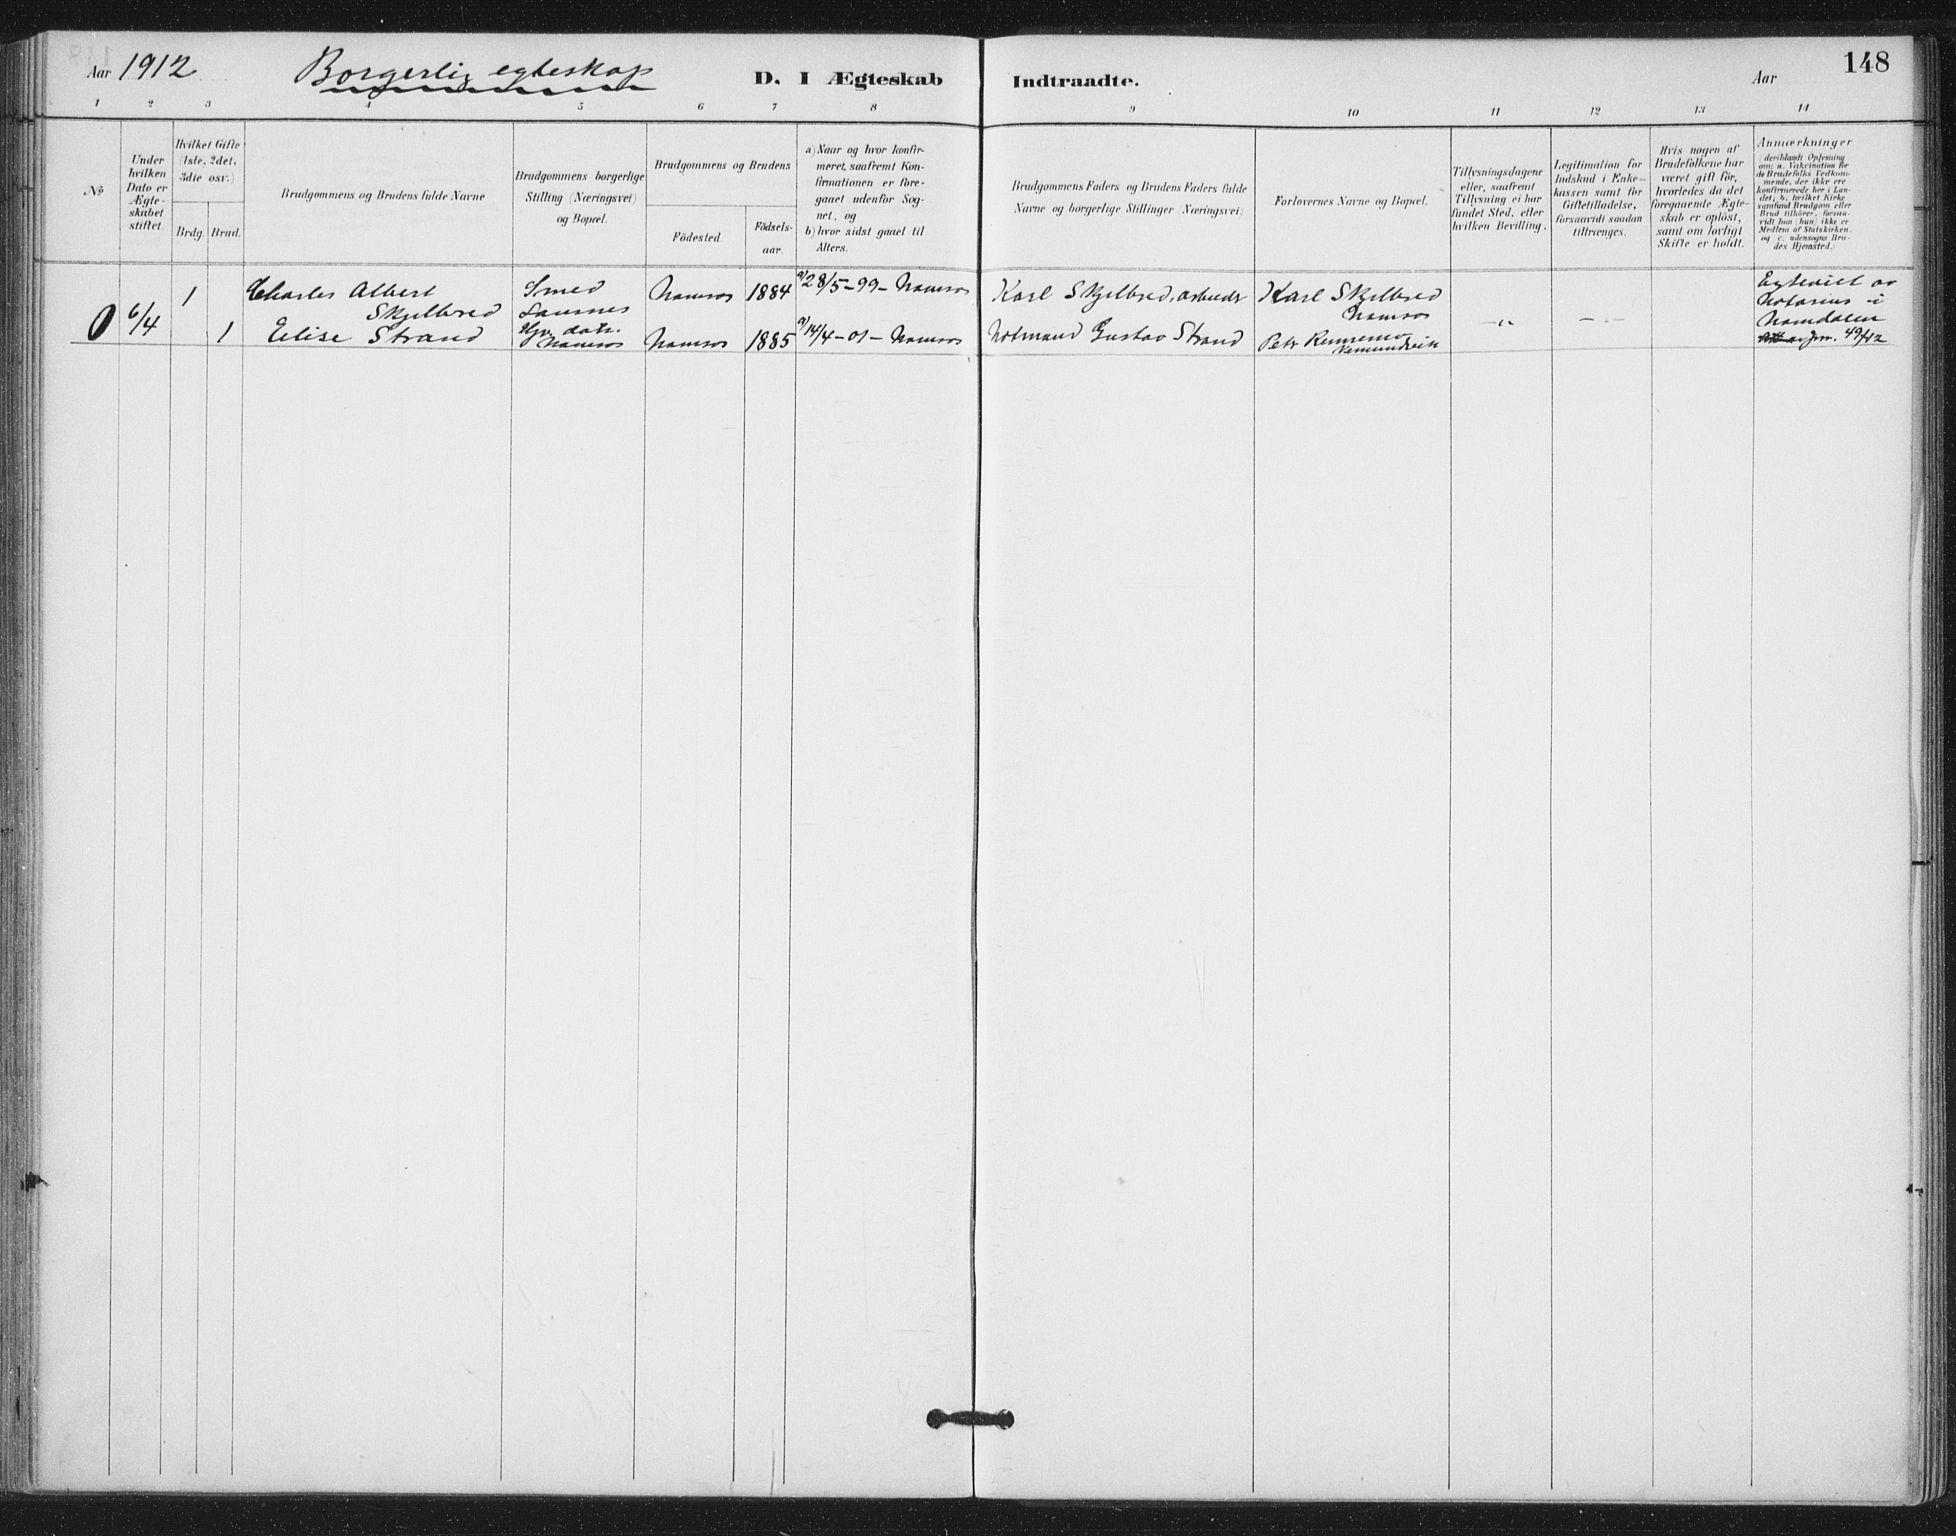 Aar 1912 Borgerlig egteskap D. I Ægteskab Indtraadte. Aar 148
1 2 3 4 5 6 7 8 9 10 11 12 13 14
No
Under
hvilken
Dato er
Ægte-
skabet
stiftet.
Hvilket Gifte
(1ste, 2det,
3die osv.)
Brdg. Brud.
Brudgommens og Brudens fulde Navne
Brudgommens borgerlige
Stilling (Næringsvei)
og Bopæl.
Brudgommens og Brudens
Födested.
Födsels-
aar.
a) Naar og hvor konfir-
meret, saafremt Kon-
firmationen er fore-
gaaet udenfor Sog-
net, og
b) hvor sidst gaaet til
Alters.
Brudgommens Faders og Brudens Faders fulde
Navne og borgerlige Stillinger (Næringsvei)
Forlovernes Navne og Bopæl.
Tillysningsdagene
eller, saafremt
Tillysning ei har
fundet Sted, efter
hvilken Bevilling.
Legitimation for
Indskud i Enke-
kassen samt for
Giftetilladelse,
forsaavidt saadan
tiltrænges.
Hvis nogen af
Brudefolkene har
været gift för,
hvorledes da det
foregaaende Ægte-
skab er oplöst,
samt om lovligt
Skifte er holdt.
Anmærkninger
(deriblandt Oplysning
om: a. Vakcination for
de Brudefolks Vedkom-
mende, der ikke ere
konfirmerede her i Lan-
det; b. hvilket Kirke
samfund Brudgom eller
Brud tilhörer, forsaa-
vidt han (hun) ikke er
Medlem af Statskirken,
og c. udensogns Bru-
des Hjemsted.)
0 6/4
1 Charles Albert
Skjelbred
Smed
Namsos 1884 a/ 28/5-99- Namsos
Karl Skjelbred, arbeider
Karl Skjelbred
Namsos
1 Elise Strand
Namsos
Namsos 1885 a/ 14/4-01- Namsos
Notmand Gustav Strand
Petr
-"- - -
Egteviet av
Notarius i
Namdalen
49/12